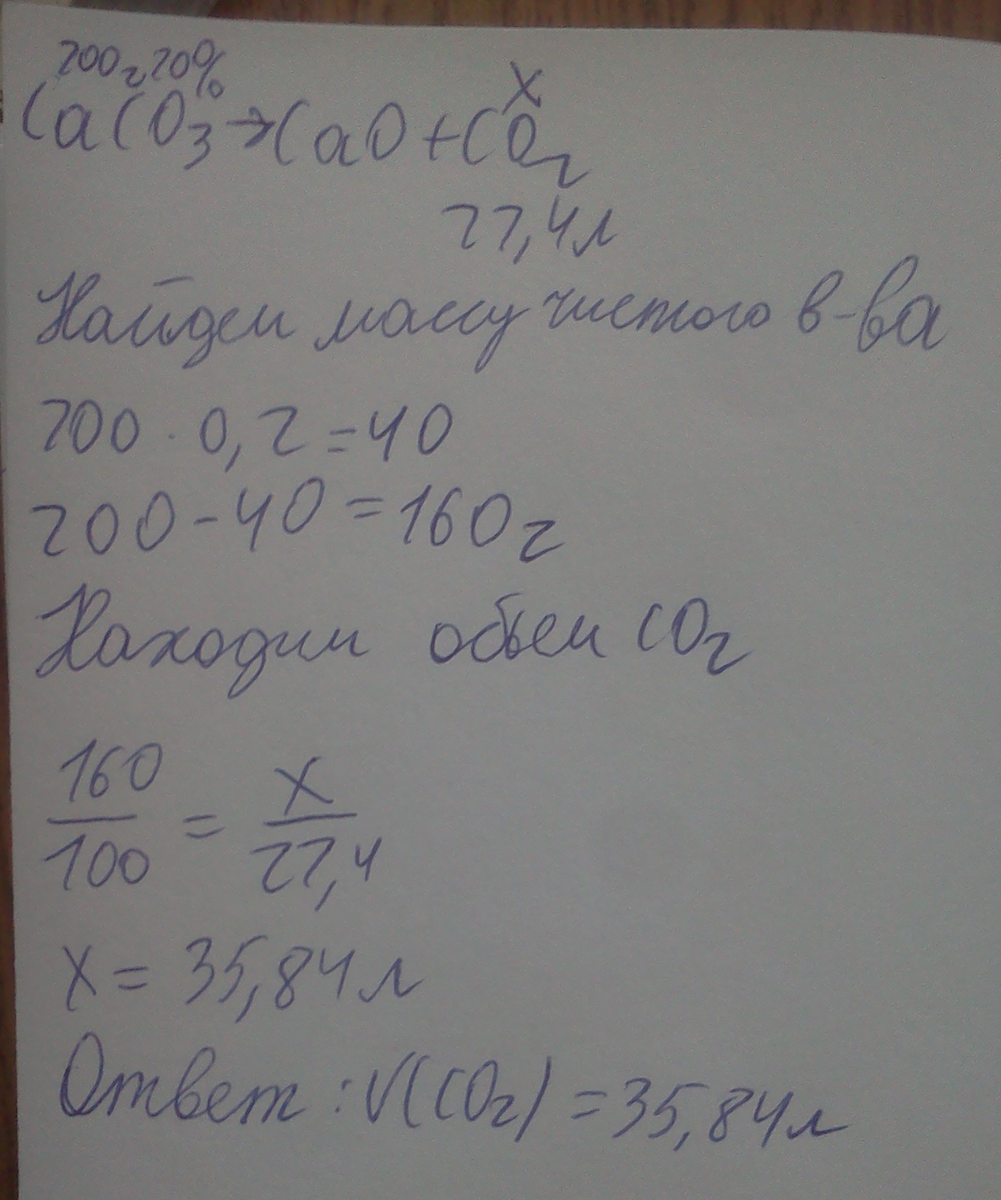 200г 20% x
CaCO3→CaO+CO2
22,4л
Найдем массу чистого в-ва
200·0,2=40
200-40=160г
Находим объем CO2
160/100 = x/22,4
x=35,84л
Ответ: V(CO2)=35,84л